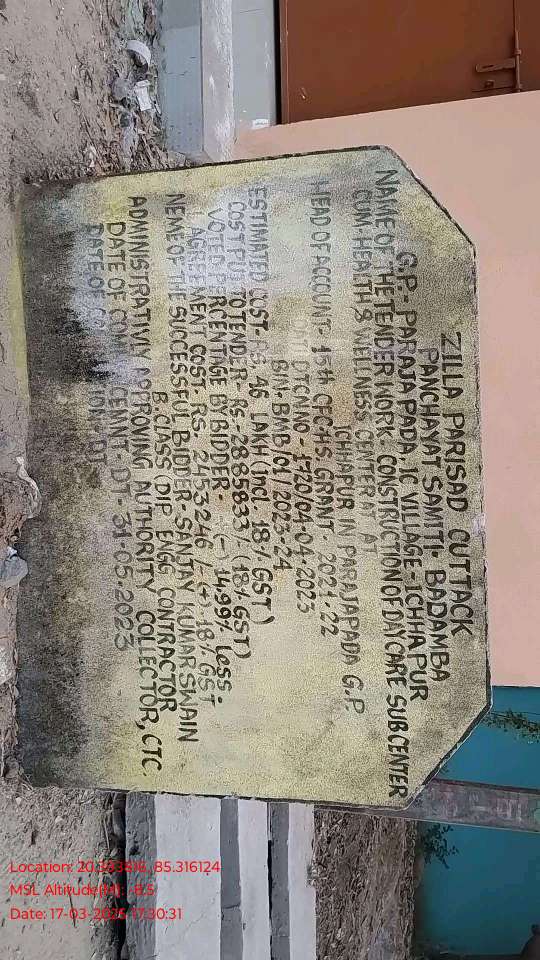 ZILLA PARISAD CUTTACK
PANCHAYAT SAMITI- BADAMBA
G.P.- PARAJAPADA IC VILLAGE-ICHHAPUR
NAME OF THE TENDER WORK- CONSTRUCTION OF DAYCARE SUBCENTER
CUM. HEALTH & WELLNESS CENTER AT AT
ICHHAPUR IN PARAJAPADA G.P.
HEAD OF ACCOUNT- 15th CFCHS GRANT- 2021-22
DTCNNO- 1720/04-04-2023
BIN- BMB/01/2023-24
ESTIMATED COST- RS. 46 LAKH (Incl. 18% GST)
COST PUT TO TENDER- RS.- 2885833/- (18% GST)
VOTED PERCENTAGE BY BIDDER- (-) 14.99% Less-
AGREEMENT COST- RS- 2453246/- (+) 18% GST
NEME OF THE SUCCESSFUL BIDDER- SANJAY KUMAR SWAIN
B. CLASS (DIP ENGG CONTRACTOR
ADMINISTRATIVLY APPROVING AUTHORITY COLLECTOR, CTC.
DATE OF DT- 31-05-2023
DATE OF DT
Location: 85.316124
MSL Altitude(M): -8.5
Date: 17-03-2026 17:30:31